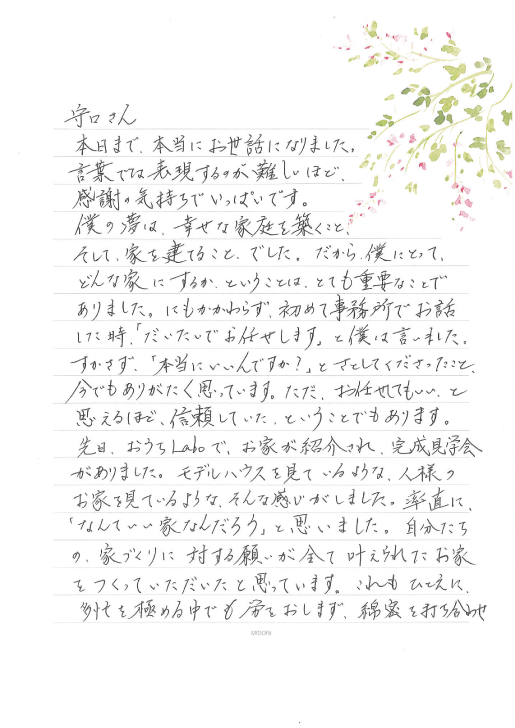 守口さん
本日まで、本当にお世話になりました。
言葉では表現するのが難しいほど、
感謝の気持ちでいっぱいです。
僕の夢は、幸せな家庭を築くこと、
そして、家を建てること、でした。だから、僕にとって、
どんな家にするか、ということは、とても重要なことで
ありました。にもかかわらず、初めて事務所でお話
した時、「だいたいでお任せします」と僕は言いました。
すかさず、「本当にいいんですか?」とさとしてくださったこと、
今でもありがたく思っています。ただ、お任せしてもいい、と
思えるほど、信頼していた、ということでもあります。
先日、おうちLaboで、お家が紹介され、完成見学会
がありました。モデルハウスを見ているような、人様の
お家を見ているような、そんな感じがしました。率直に、
「なんていい家なんだろう」と思いました。自分たち
の、家づくりに対する願いが全て叶えられたお家
をつくっていただいたと思っています。これもひとえに、
多忙を極める中でも労をおしまず、綿密な打ち合わせ
MIDORI